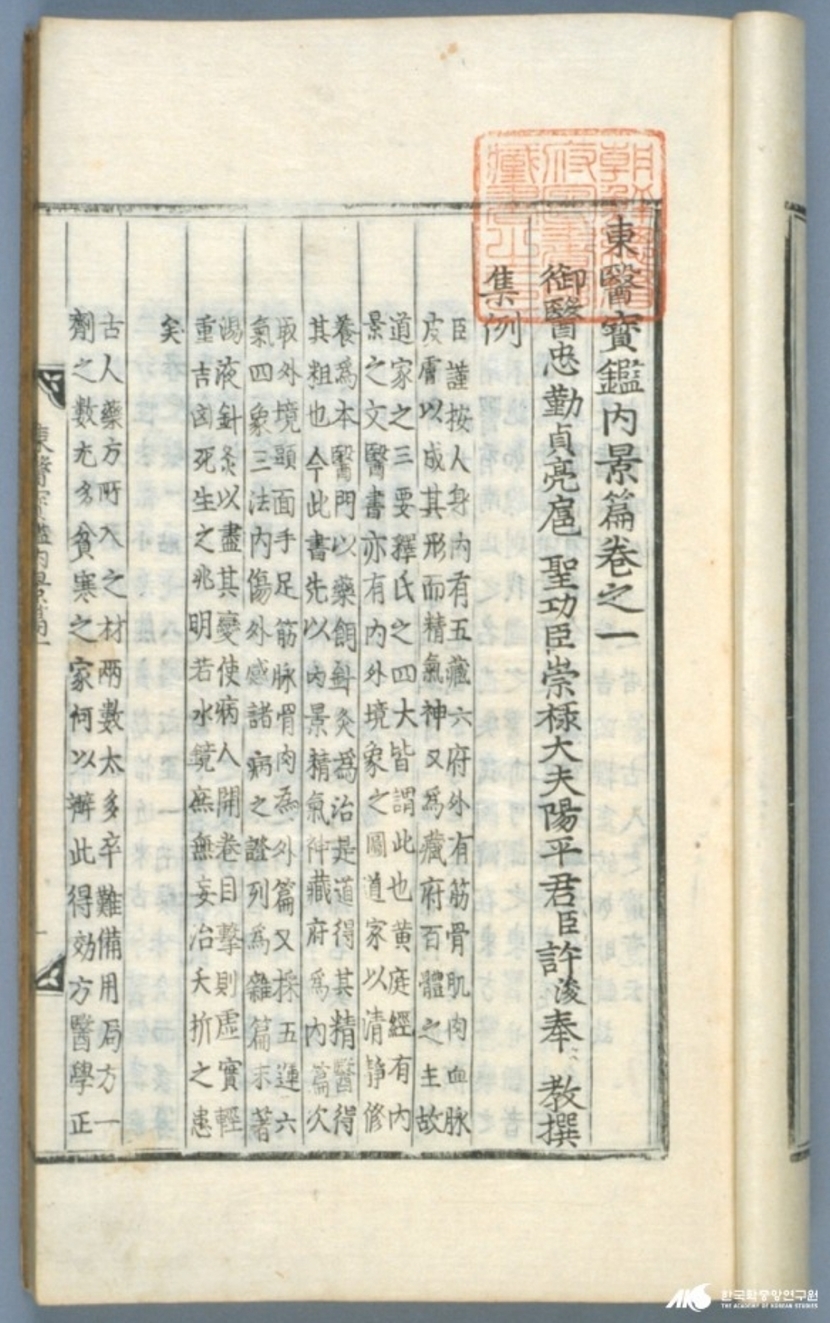 東醫寶鑑內景篇卷之一
御醫忠勤貞亮扈 聖功臣崇祿大夫陽平君臣許浚奉 教撰
集例
臣謹按人身內有五藏六府外有筋骨肌肉血脉
皮膚以成其形而精氣神又爲藏府百體之主故
道家之三要釋氏之四大皆謂此也黃庭經有內
景之文醫書亦有內外境象之圖道家以清靜修
養爲本醫門以藥餌針灸爲治是道得其精醫得
其粗也今此書先以內景精氣神藏府爲內篇次
取外境頭面手足筋脉骨肉爲外篇又採五運六
氣四象三法內傷外感諸病之證列爲雜篇末著
湯液針灸以盡其變使病人開卷目擊則虛實輕
重吉凶死生之兆明若水鏡庶無妄治夭折之患
矣
古人藥方所入之材兩數太多卒難備用局方一
劑之數尤多貧寒之家何以辦此得効方醫學正
東醫寶鑑內景篇一
한국학중앙연구원
THE ACADEMY OF KOREAN STUDIES